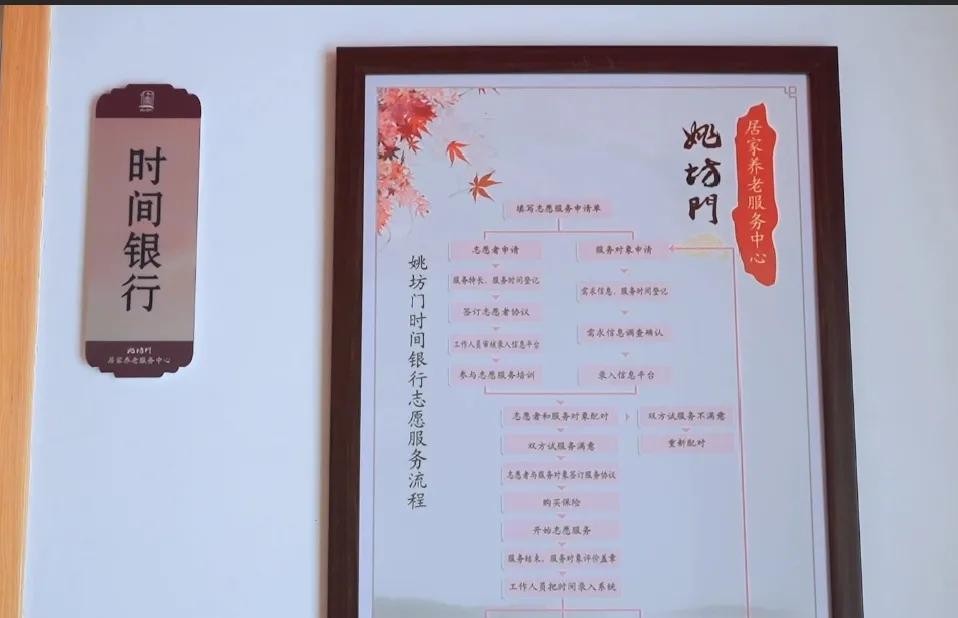 时间银行
姚坊門
居家养老服务中心
姚坊門
居家养老服务中心
姚坊门时间银行志愿服务流程
填写志愿服务申请单
志愿者申请
服务对象申请
服务特长、服务时间登记
需求信息、服务时间登记
签订志愿者协议
需求信息调查确认
工作人员审核录入信息平台
参与志愿服务培训
录入信息平台
志愿者和服务对象配对
双方试服务不满意
双方试服务满意
重新配对
志愿者与服务对象签订服务协议
购买保险
开始志愿服务
服务结束，服务对象评价盖章
工作人员把时间录入系统